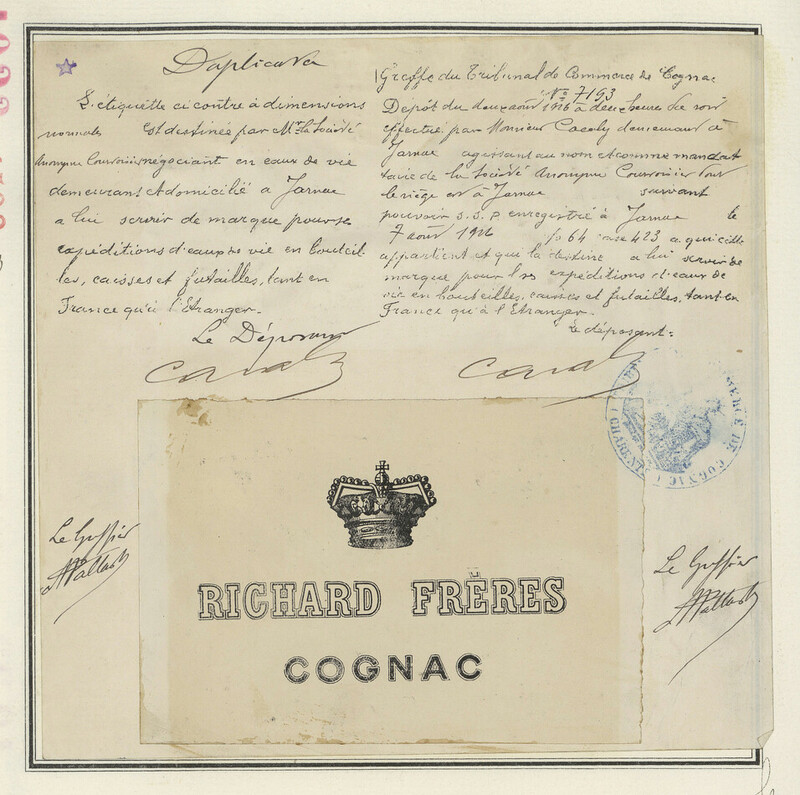 Duplicata
L'étiquette ci contre à dimensions
normales est destinée par Mr. la Société
Anonyme Courvoisier négociant en eaux de vie
demeurant et domicilié a Jarnac
a lui servir de marque pour ses
expéditions d'eaux de vie en bouteil
les, caisses et futailles, tant en
France qu'à l'Etranger.
Le Déposant
Greffe du Tribunal de Commerce de Cognac
No 7193
Dépôt du deux août 1926 à deux heures du soir
effectué par Monsieur demeurant à
Jarnac agissant au nom et comme mandat
taire de la Société Anonyme Courvoisier dont
le siège est à Jarnac suivant
pouvoir S.S.P enregistré à Jarnac le
7 août 1926 fo 64 case 423 a qui elle
appartient et qui la destine a lui servir de
marque pour les expéditions d'eaux de
vie en bouteilles, caisses et futailles, tant en
France qu'à l'Etranger.
Le déposant:
MERCE DE COGNAC
(CHARENTE)
Le Greffier
Le Greffier
RICHARD FRÈRES
COGNAC